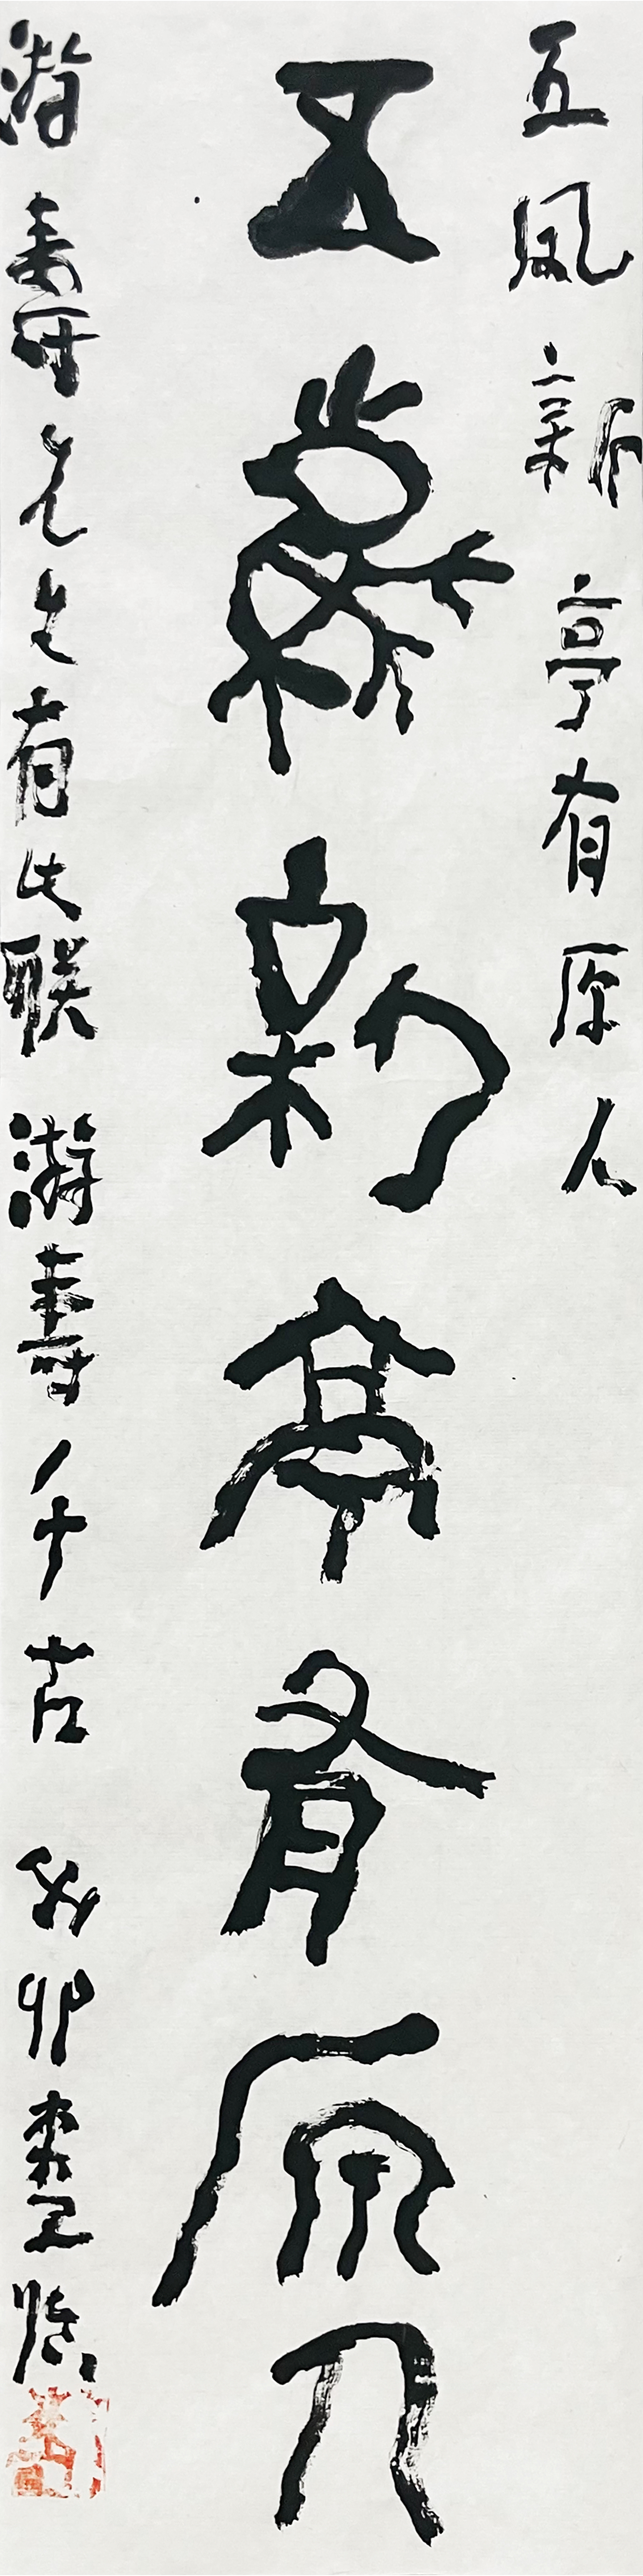 五凤新亭有原人
五鳳新亭有原人
游壽先生有此联 游壽千古 癸卯